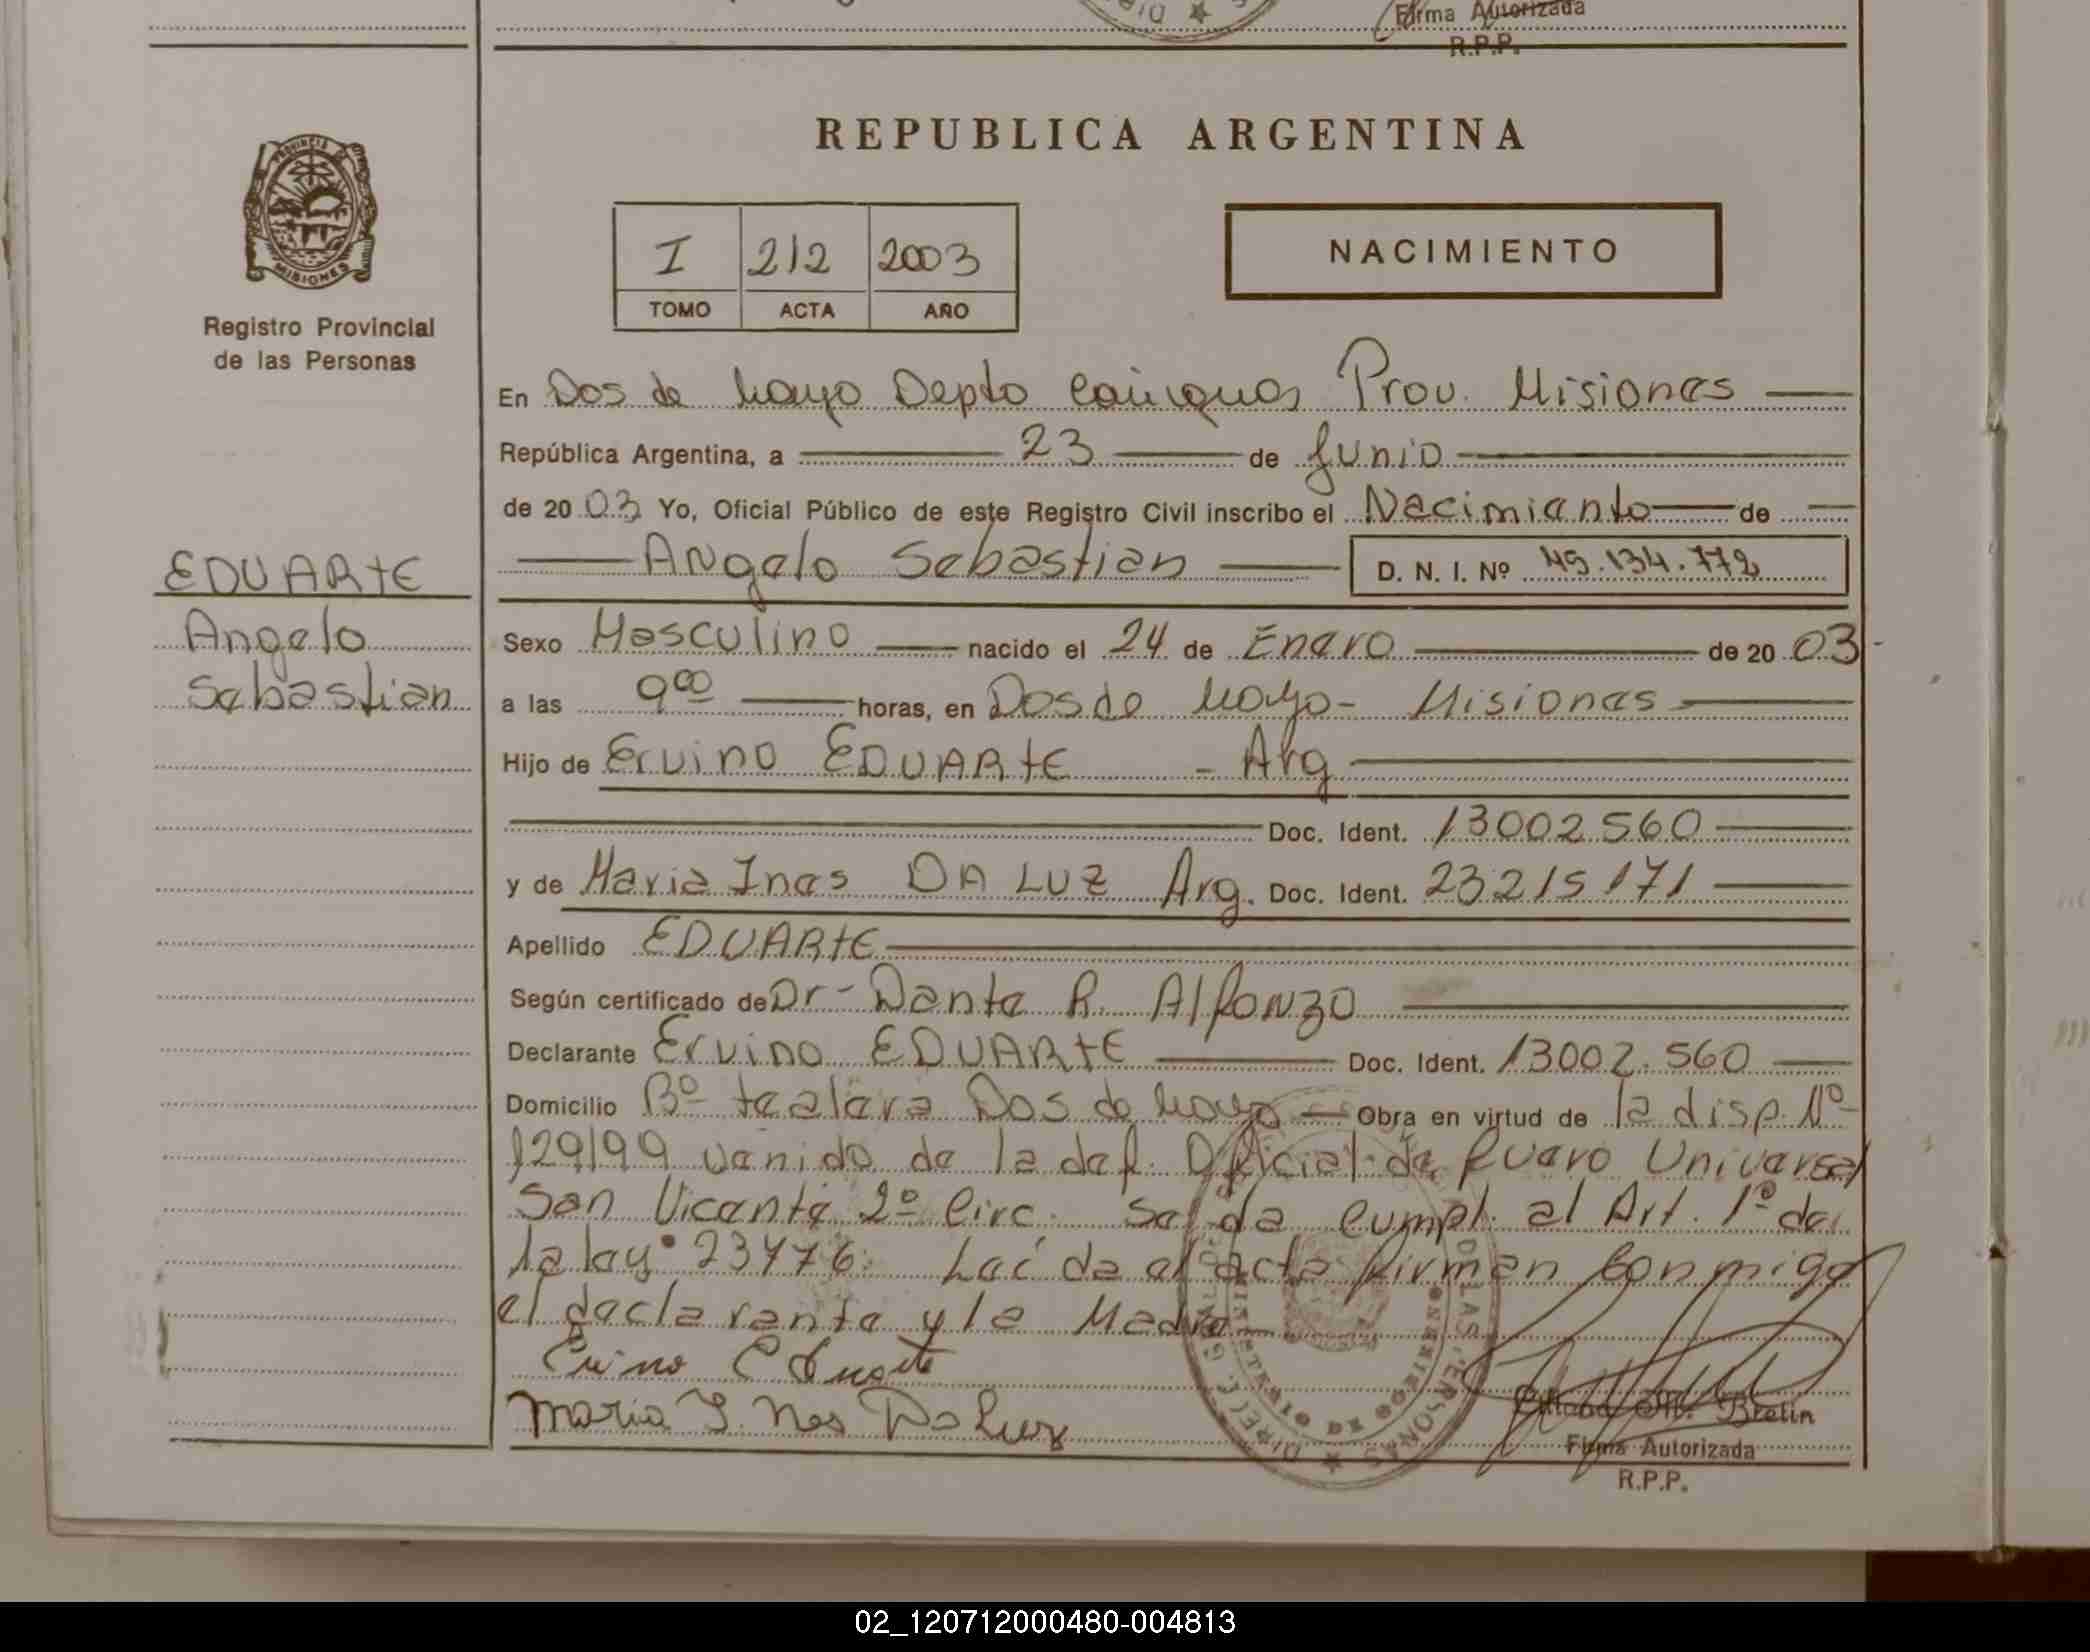 Firma Autorizada
R.P.P.
REPUBLICA ARGENTINA
PROVINCIA DE MISIONES
Registro Provincial
de las Personas
I 212 2003
TOMO ACTA AÑO
NACIMIENTO
En Dos de Mayo Depto Cainguas Prov. Misiones
República Argentina, a 23 de Junio
de 20 03 Yo, Oficial Público de este Registro Civil inscribo el Nacimiento de
Angelo Sebastian D. N. I. Nº 45.134.772
EDUARTE
Angelo
Sebastian
Sexo Masculino nacido el 24 de Enero de 20 03-
a las 9 00 horas, en Dos de Mayo- Misiones
Hijo de Ervino EDUARTE - Arg
Doc. Ident. 13002560
y de Maria Ines DA LUZ Arg. Doc. Ident. 23215171
Apellido EDUARTE
Según certificado de Dr- Dante R. Alfonzo
Declarante Ervino EDUARTE Doc. Ident. 13002.560
Domicilio Bº tealera Dos de Mayo Obra en virtud de la disp. Nº
129/99 venido de la def. Oficial de Fuero Universal
San Vicente 2º Circ. Se da cumpl. al Art. 1º de
la ley 23776. Leí da el acta firman Conmigo
el declarante y la Madre
Ervino Eduarte
Maria I. Nes Da Luz
Bretin
Firma Autorizada
R.P.P.
02_120712000480-004813